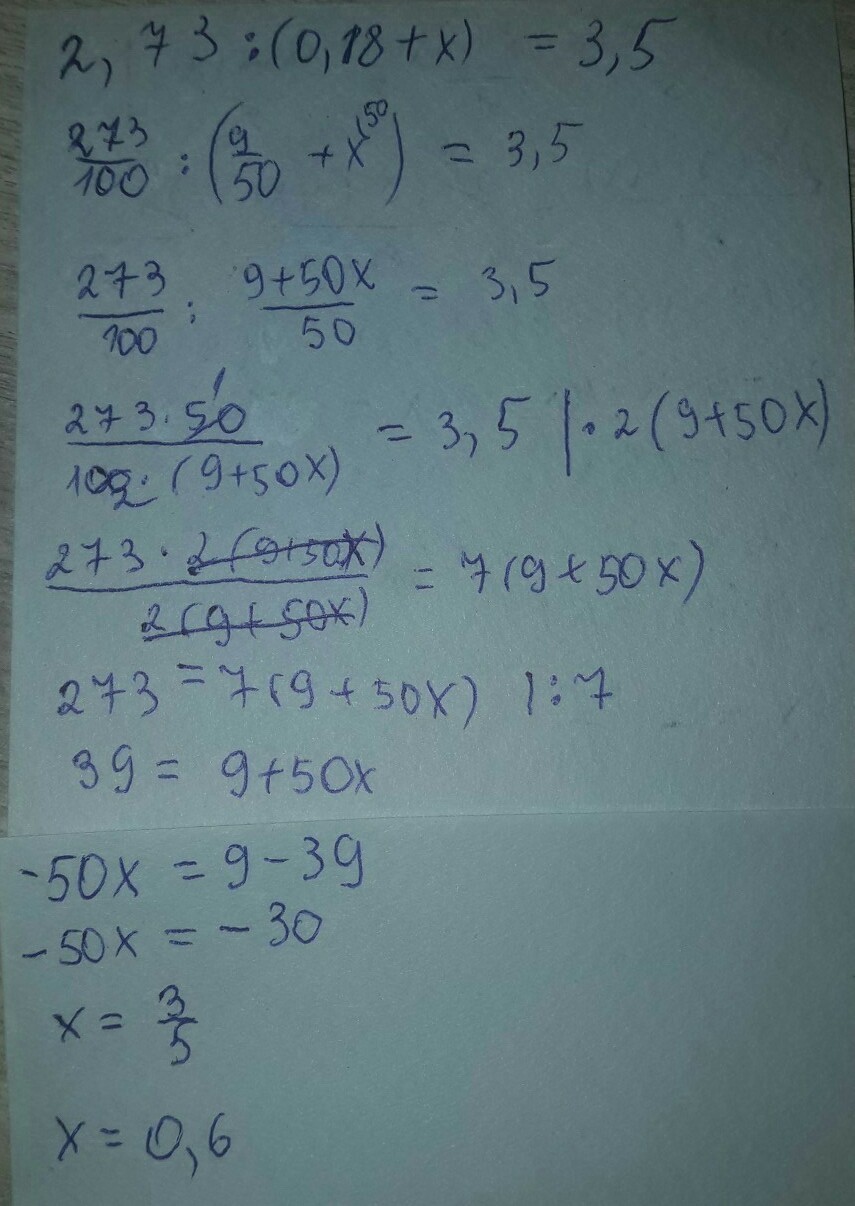 2,73 : (0,18 + x) = 3,5
273/100 : (9/50 + x^(50) = 3,5
273/100 : 9+50x/50 = 3,5
273·50 1/100 2·(9+50x) = 3,5 |·2(9+50x)
273·2(9+50x)/2(9+50x) = 7(9+50x)
273 = 7(9+50x) |:7
39 = 9+50x
-50x = 9-39
-50x = -30
x = 3/5
x = 0,6